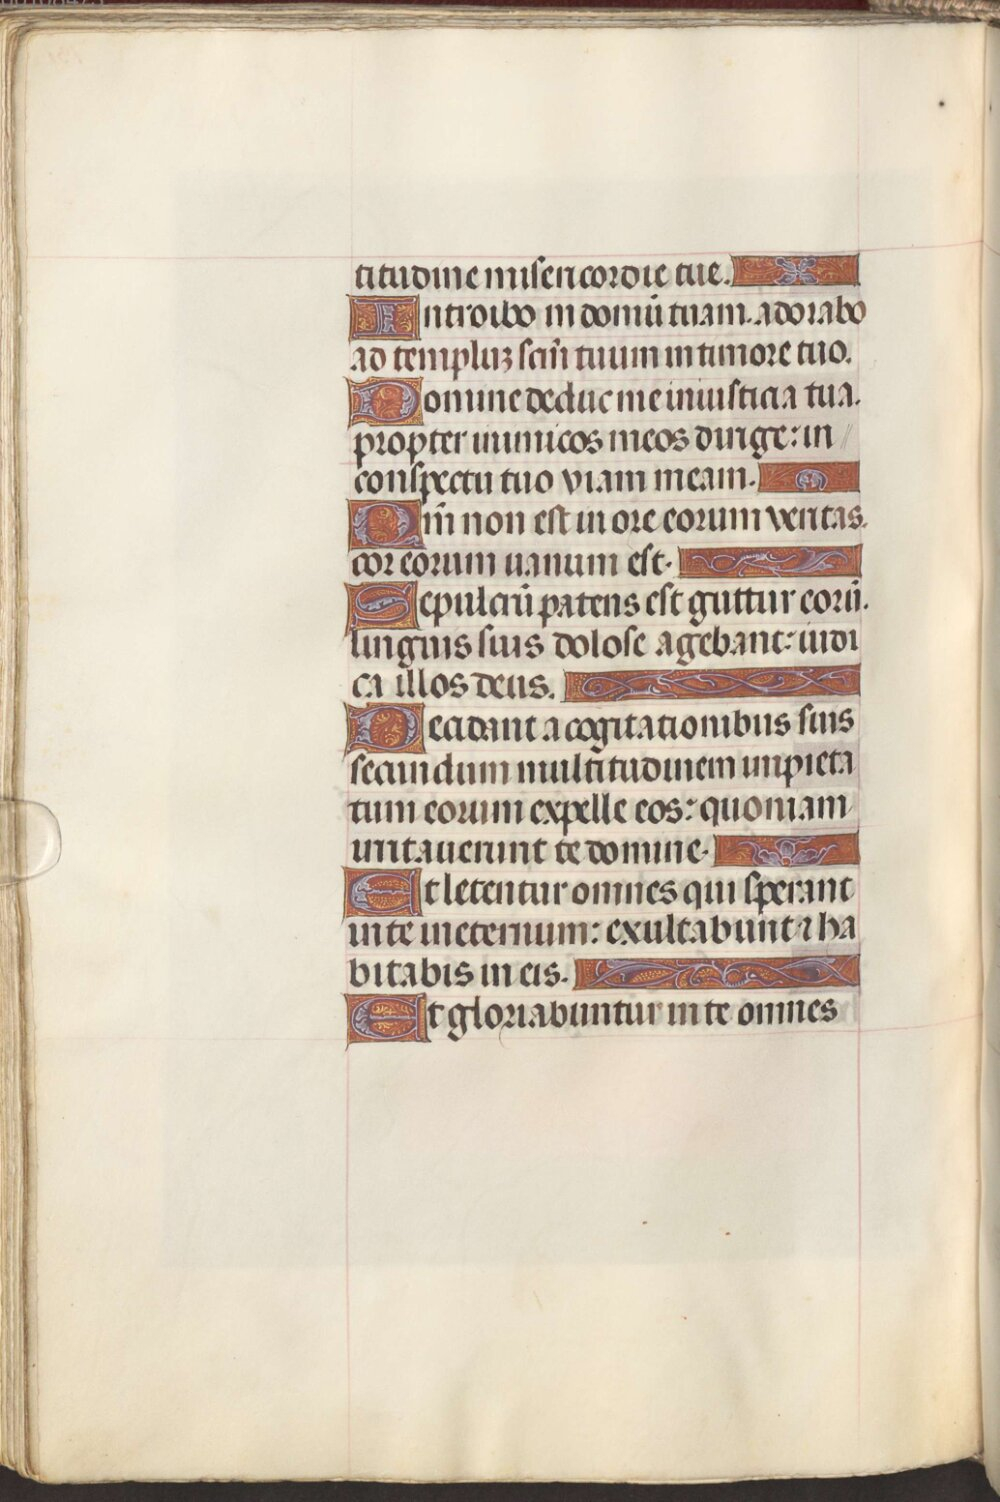 titudine misericordie tue.
Introibo in domū tuam. adorabo
ad templuꝫ scm̄ tuum in timore tuo.
Domine deduc me in iusticia tua.
propter inimicos meos dirige: in
conspectu tuo viam meam.
Qm̄ non est in ore eorum veritas.
cor eorum uanum est.
Sepulcrū patens est guttur eorū.
linguis suis dolose agebant: iudi
ca illos deus.
Decidant a cogitationibus suis
secundum multitudinem impieta
tum eorum expelle eos: quoniam
irritauerunt te domine.
Et letentur omnes qui sperant
in te in eternum: exultabunt ⁊ ha
bitabis in eis.
Et gloriabuntur in te omnes